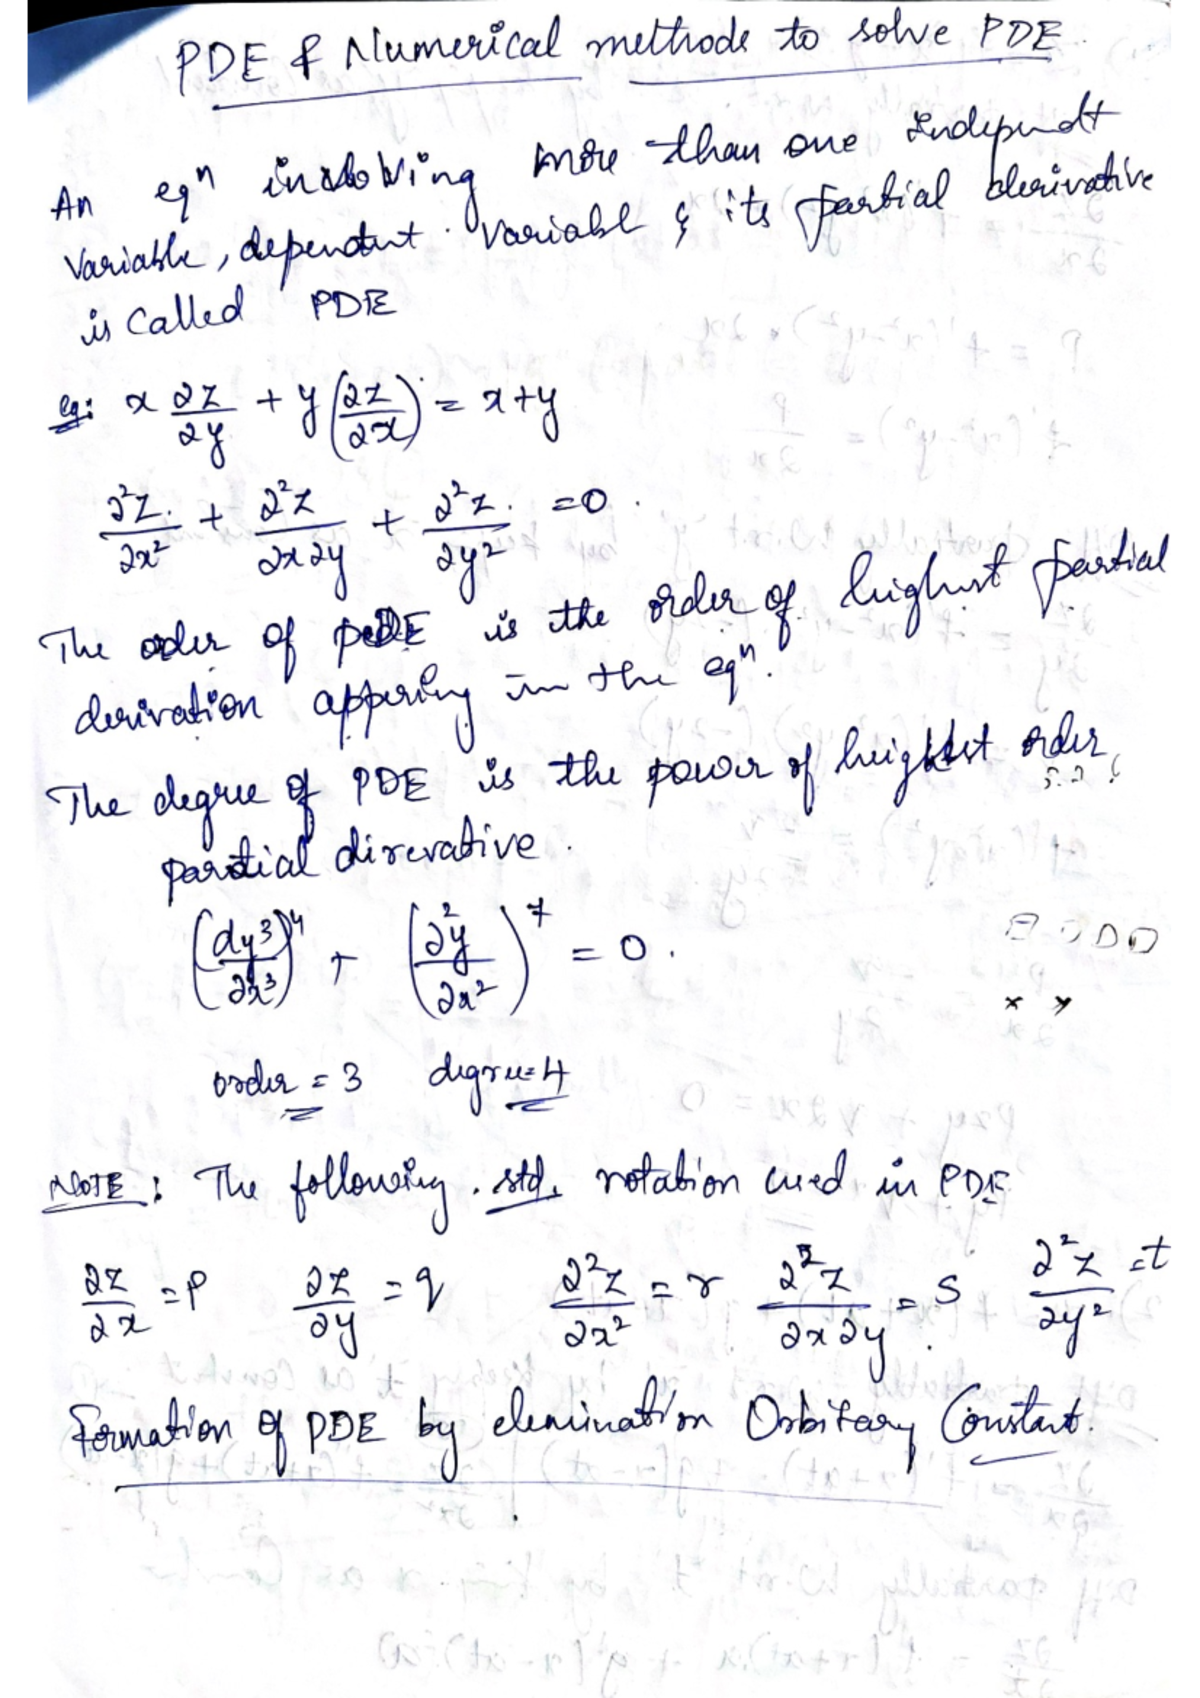 PDE & Numerical methode to solve PDE
An eqⁿ involving more than one independt
Variable, dependent variable & its partial derivative
is Called PDE
eg: x ∂z/∂y + y(∂z/∂x) = x+y
∂²z/∂x² + ∂²z/∂x∂y + ∂²z/∂y² = 0.
The order of PDE is the order of highest partial
derivation appering in the eqⁿ.
The degree of PDE is the power of heighest order
partial direvative.
(dy³/∂x³)⁴ + (∂²y/∂x²)⁷ = 0.
order = 3 degree = 4
NOTE: The following std. notation used in PDE
∂z/∂x = p ∂z/∂y = q ∂²z/∂x² = r ∂²z/∂x∂y = s ∂²z/∂y² = t
Formation of PDE by elemination Orbitary Constant.